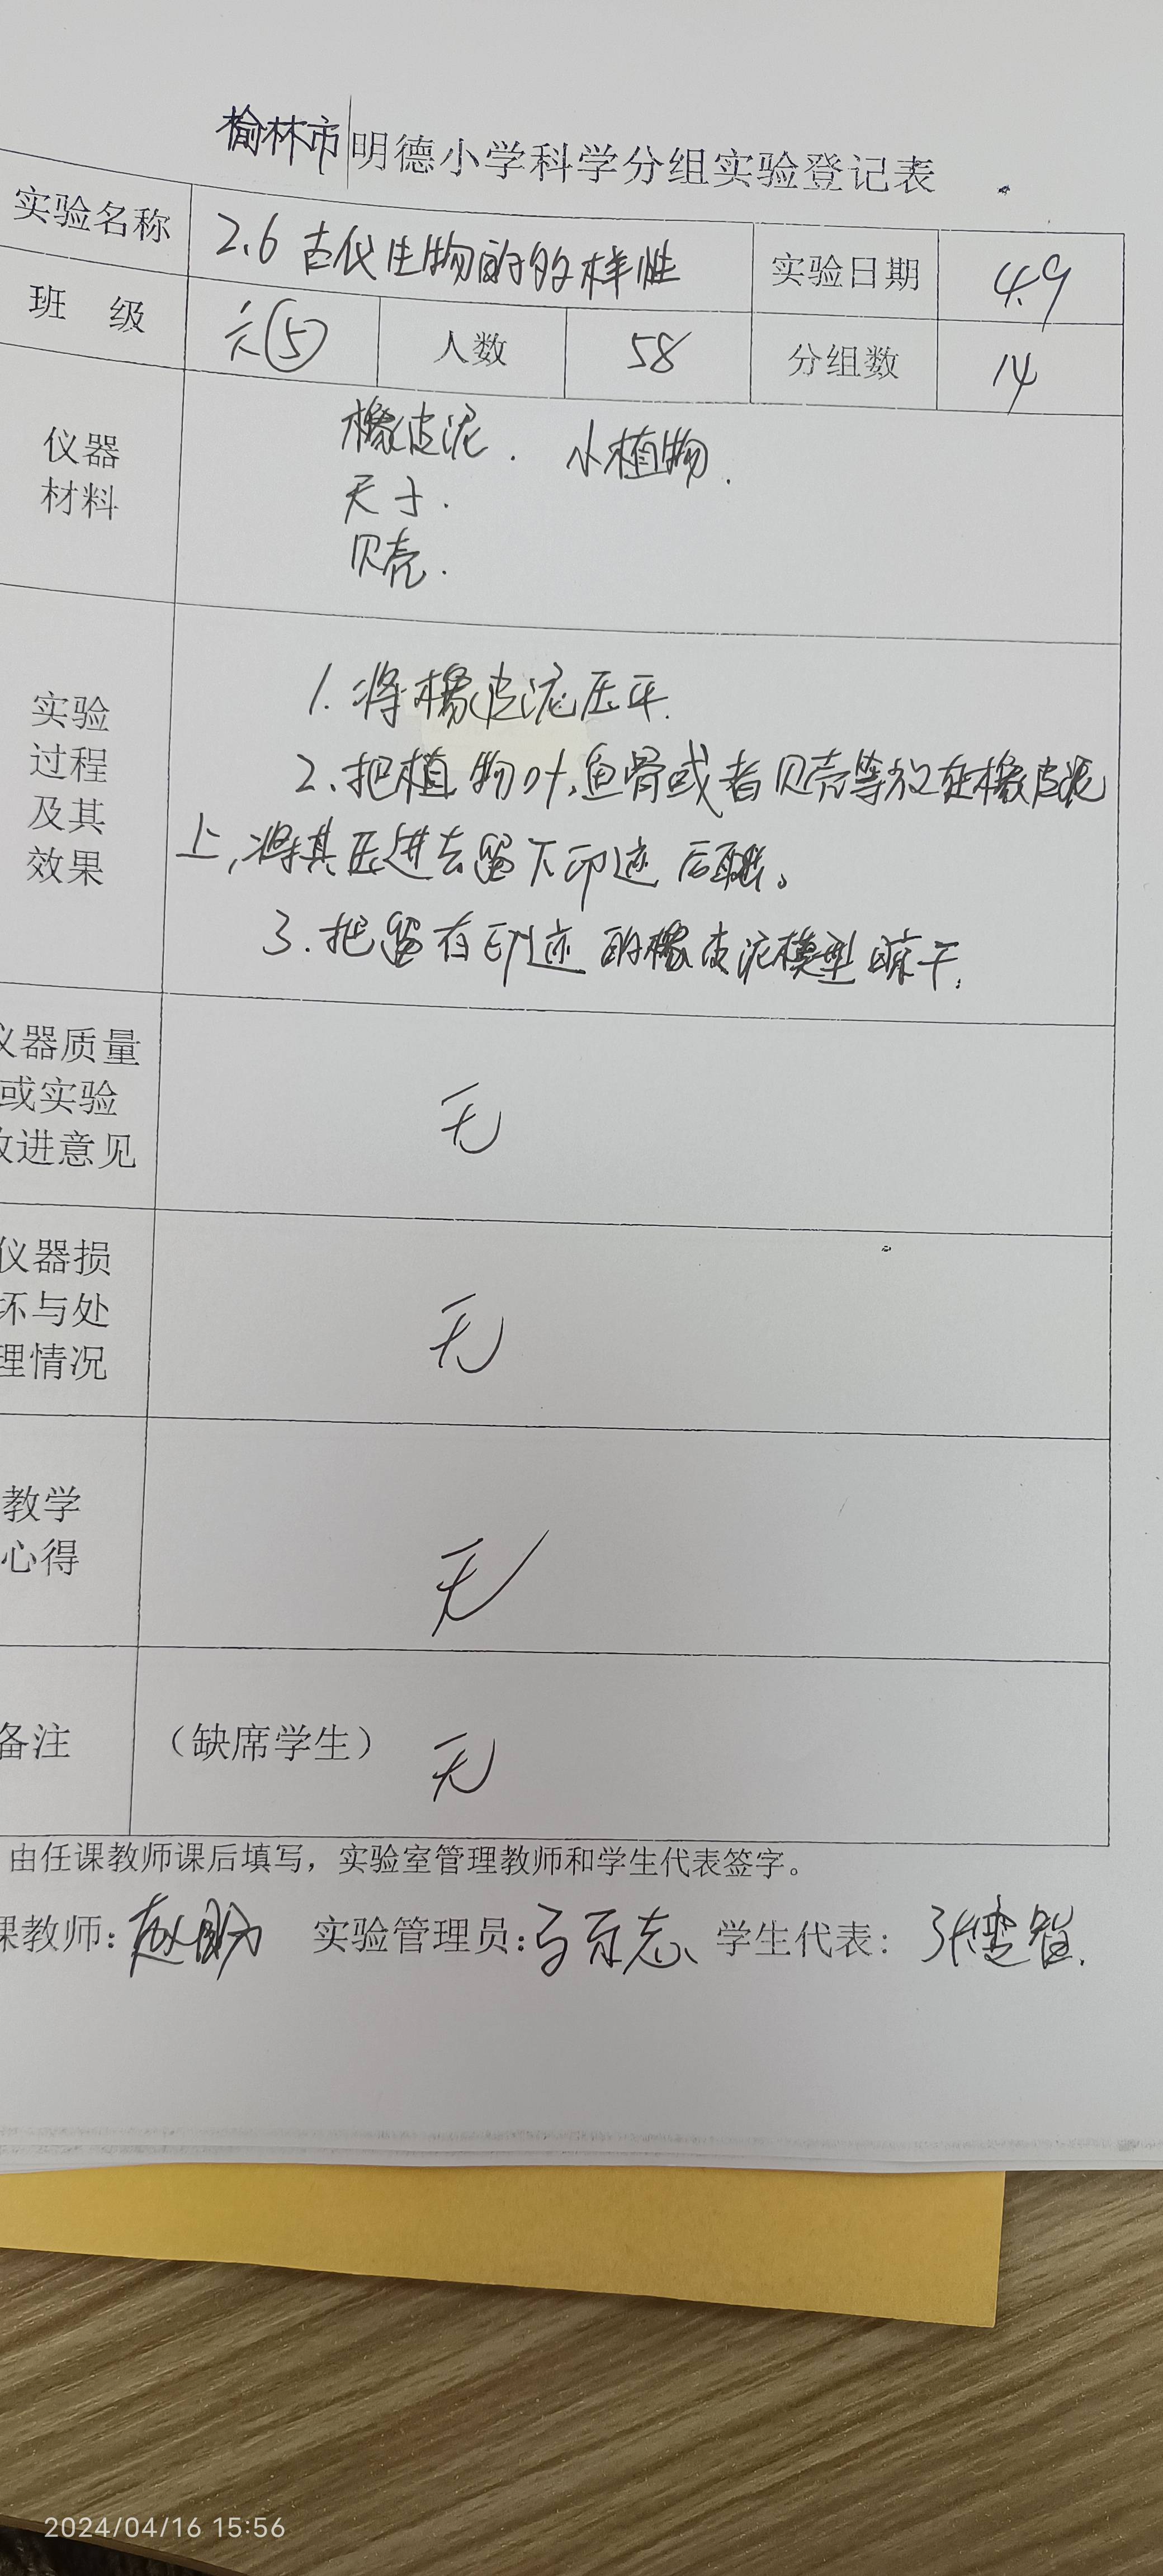 榆林市明德小学科学分组实验登记表
实验名称 2.6 古代生物的多样性 实验日期 4.9
班 级 六⑤ 人数 58 分组数 14
仪器
材料
橡皮泥. 小植物.
尺子.
贝壳.
实验
过程
及其
效果
1. 将橡皮泥压平.
2. 把植物叶,鱼骨或者贝壳等放在橡皮泥
上,将其压进去留下印迹后取。
3. 把留有印迹的橡皮泥模型晾干.
仪器质量
或实验
改进意见
无
仪器损
坏与处
理情况
无
教学
心得
无
备注 (缺席学生) 无
由任课教师课后填写,实验室管理教师和学生代表签字。
课教师: 实验管理员: 学生代表:
2024/04/16 15:56